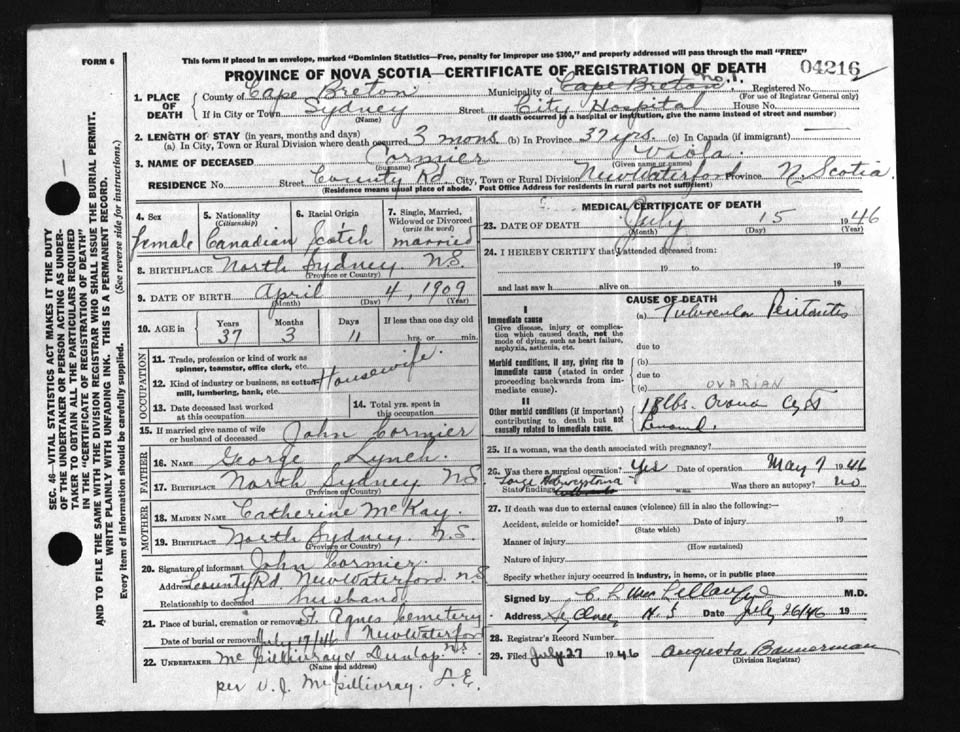 FORM 6
This form if placed in an envelope, marked "Dominion Statistics—Free, penalty for improper use $300," and properly addressed will pass through the mail "FREE"
PROVINCE OF NOVA SCOTIA—CERTIFICATE OF REGISTRATION OF DEATH
04216
1. PLACE OF DEATH
County of Cape Breton Municipality of Cape Breton No. 1. Registered No.
(For use of Registrar General only)
If in City or Town Sydney Street City Hospital House No.
(Name) (If death occurred in a hospital or institution, give the name instead of street and number)
2. LENGTH OF STAY (in years, months and days)
(a) In City, Town or Rural Division where death occurred 3 mons. (b) In Province 37 yrs. (c) In Canada (if immigrant)
3. NAME OF DECEASED Cormier Viola
(Surname) (Given name or names)
RESIDENCE No. Street County Rd. City, Town or Rural Division New Waterford Province N. Scotia
(Residence means usual place of abode. Post Office Address for residents in rural parts not sufficient)
4. Sex female
5. Nationality (Citizenship) Canadian
6. Racial Origin Scotch
7. Single, Married, Widowed or Divorced (write the word) married
8. BIRTHPLACE North Sydney N.S.
(Province or Country)
9. DATE OF BIRTH April 4, 1909
(Month) (Day) (Year)
10. AGE in Years 37 Months 3 Days 11 If less than one day old hrs. or min.
OCCUPATION
11. Trade, profession or kind of work as spinner, teamster, office clerk, etc. Housewife.
12. Kind of industry or business, as cotton mill, lumbering, bank, etc.
13. Date deceased last worked at this occupation
14. Total yrs. spent in this occupation
15. If married give name of wife or husband of deceased John Cormier
FATHER
16. NAME George Lynch.
17. BIRTHPLACE North Sydney N.S.
(Province or Country)
MOTHER
18. MAIDEN NAME Catherine McKay.
19. BIRTHPLACE North Sydney. N.S.
(Province or Country)
20. Signature of informant John Cormier
Address County Rd. New Waterford. N.S.
Relationship to deceased husband
21. Place of burial, cremation or removal St. Agnes Cemetery
Date of burial or removal July 17/46 New Waterford N.S.
22. UNDERTAKER McGillivray & Dunlop
(Name and address)
per V. J. McGillivray. L.E.
MEDICAL CERTIFICATE OF DEATH
23. DATE OF DEATH July 15 1946
(Month) (Day) (Year)
24. I HEREBY CERTIFY that I attended deceased from:
19 to 19
and last saw h alive on 19
CAUSE OF DEATH
I
Immediate cause
Give disease, injury or complication which caused death, not the mode of dying, such as heart failure, asphyxia, asthenia, etc.
(a) Tubercular Peritonitis
due to
Morbid conditions, if any, giving rise to immediate cause (stated in order proceeding backwards from immediate cause).
(b)
due to
(c) OVARIAN
II
Other morbid conditions (if important) contributing to death but not causally related to immediate cause.
18 lbs. Cyst
25. If a woman, was the death associated with pregnancy?
26. Was there a surgical operation? Yes Date of operation May 7 1946
State findings Was there an autopsy? No
27. If death was due to external causes (violence) fill in also the following:—
Accident, suicide or homicide? Date of injury 19
(State which)
Manner of injury
(How sustained)
Nature of injury
Specify whether injury occurred in industry, in home, or in public place
Signed by M.D.
Address N.S Date July 26/46 19
28. Registrar's Record Number
29. Filed July 27 1946 Augusta Bannerman
(Division Registrar)
SEC. 46—VITAL STATISTICS ACT MAKES IT THE DUTY OF THE UNDERTAKER OR PERSON ACTING AS UNDERTAKER TO OBTAIN ALL THE PARTICULARS REQUIRED IN THE "CERTIFICATE OF REGISTRATION OF DEATH" AND TO FILE THE SAME WITH THE DIVISION REGISTRAR WHO SHALL ISSUE THE BURIAL PERMIT.
WRITE PLAINLY WITH UNFADING INK. THIS IS A PERMANENT RECORD.
Every item of information should be carefully supplied. (See reverse side for instructions.)